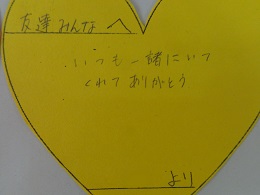 友達みんな へ
いつも一緒にいて
くれてありがとう
より